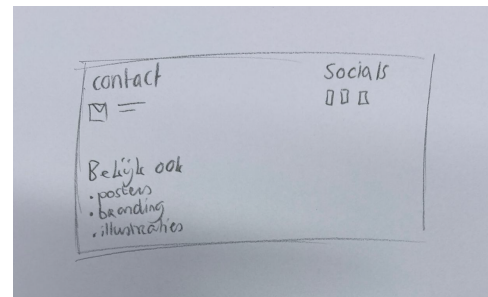 contact
Socials
Bekijk ook
• posters
• branding
• illustraties